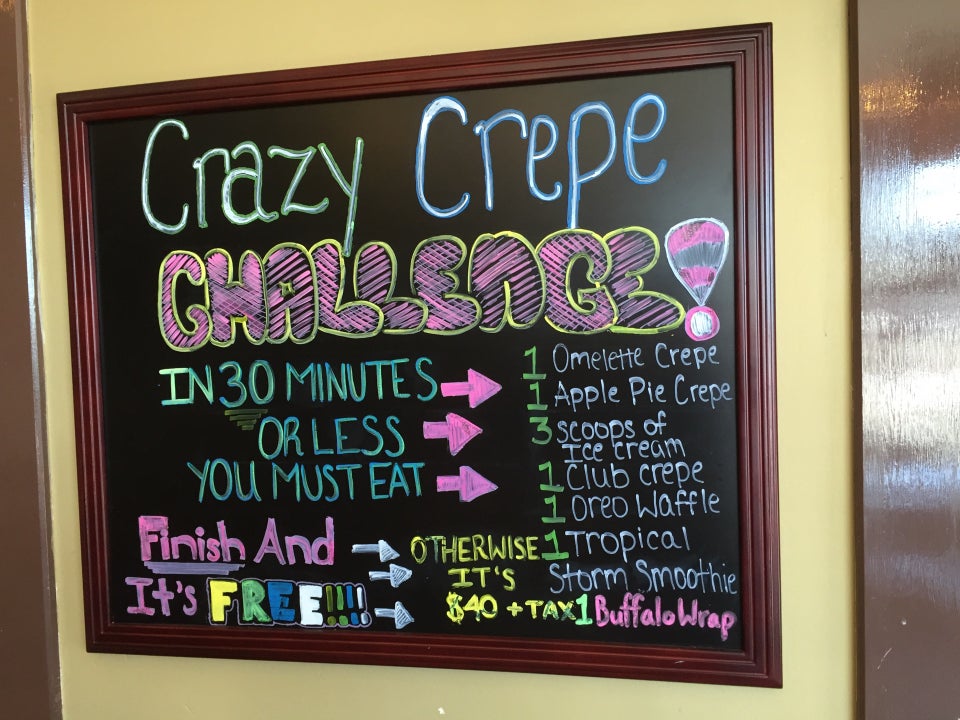 Crazy Crepe
CHALLENGE!
IN 30 MINUTES
OR LESS
YOU MUST EAT
1 Omelette Crepe
1 Apple Pie Crepe
3 scoops of
Ice cream
1 Club crepe
1 Oreo Waffle
1 Tropical
Storm Smoothie
1 Buffalo Wrap
Finish And
It's FREE!!!!
OTHERWISE
IT'S
$40 + TAX